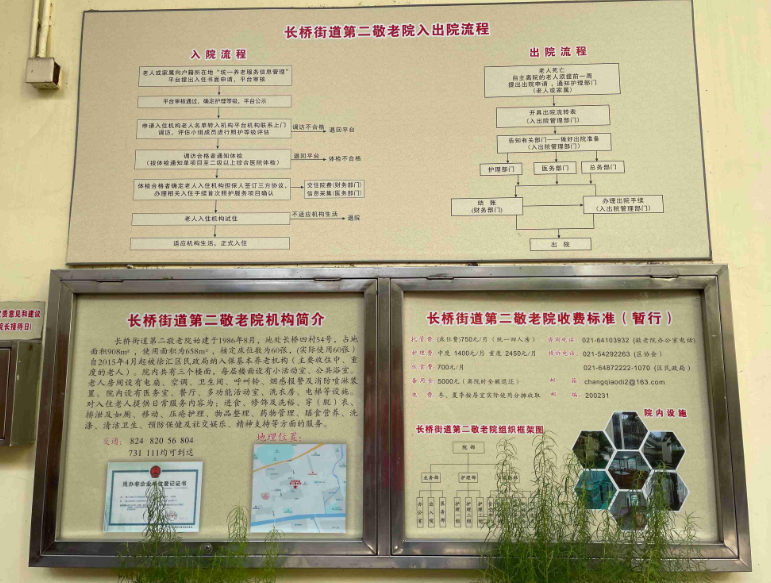 长桥街道第二敬老院入出院流程
入院流程
老人或家属向户籍所在地“统一养老服务信息管理”
平台提出入住书面申请，平台审核
平台审核通过，确定护理等级，平台公示
申请入住机构老人名单转入机构平台机构联系上门
调访，评估小组成员进行照护等级评估
调访不合格
退回平台
调访合格者通知体检
（按体检通知单项目至二级以上综合医院体检）
退回平台
体检不合格
体检合格者确定老人入住机构担保人签订三方协议，
办理相关入住手续首次照护服务项目确认
交住院费(财务部门)
信息采集(医务部门)
老人入住机构试住
不适应机构生活
退院
适应机构生活，正式入住
出院流程
老人死亡
自主离院的老人须提前一周
提出出院申请，通知护理部门
（老人或家属）
开具出院流转表
（入出院管理部门）
告知有关部门——做好出院准备
（入出院管理部门）
护理部门
医务部门
总务部门
结账
(财务部门)
办理出院手续
(入出院管理部门)
出院
长桥街道第二敬老院机构简介
长桥街道第二敬老院始建于1986年8月，地处长桥四村54号，占地
面积908m²，使用面积为658m²，核定床位数为60张，(实际使用60张)
自2015年4月起被徐汇区民政局纳入保基本养老机构(主要收住中、重
度的老人)。院内共有三个楼面，每层楼面设有小活动室、公共浴室。
老人房间设有电扇、空调、卫生间、呼叫铃、烟感报警及消防喷淋装
置。院内设有医务室、餐厅、多功能活动室、洗衣房、电梯等设施。
对入住老人提供日常服务内容为：进食、修饰及洗浴、穿(脱)衣、
排泄及如厕、移动、压疮护理、物品整理、药物管理、膳食营养、洗
涤、清洁卫生、预防保健及社交娱乐、精神支持等方面的服务。
交通：824 820 56 804
731 111均可到达
地理位置：
民办非企业单位登记证书
长桥街道第二敬老院收费标准（暂行）
750元/月
护理费 中度 1400元/月 重度 2450元/月
700元/月
5000元
咨询电话 021-64103932
021-54292263
021-64872222-1070 (区民政局)
邮箱 changqiaodi2@163.com
邮编 200231
长桥街道第二敬老院组织框架图
院内设施
院部
业务部
护理部